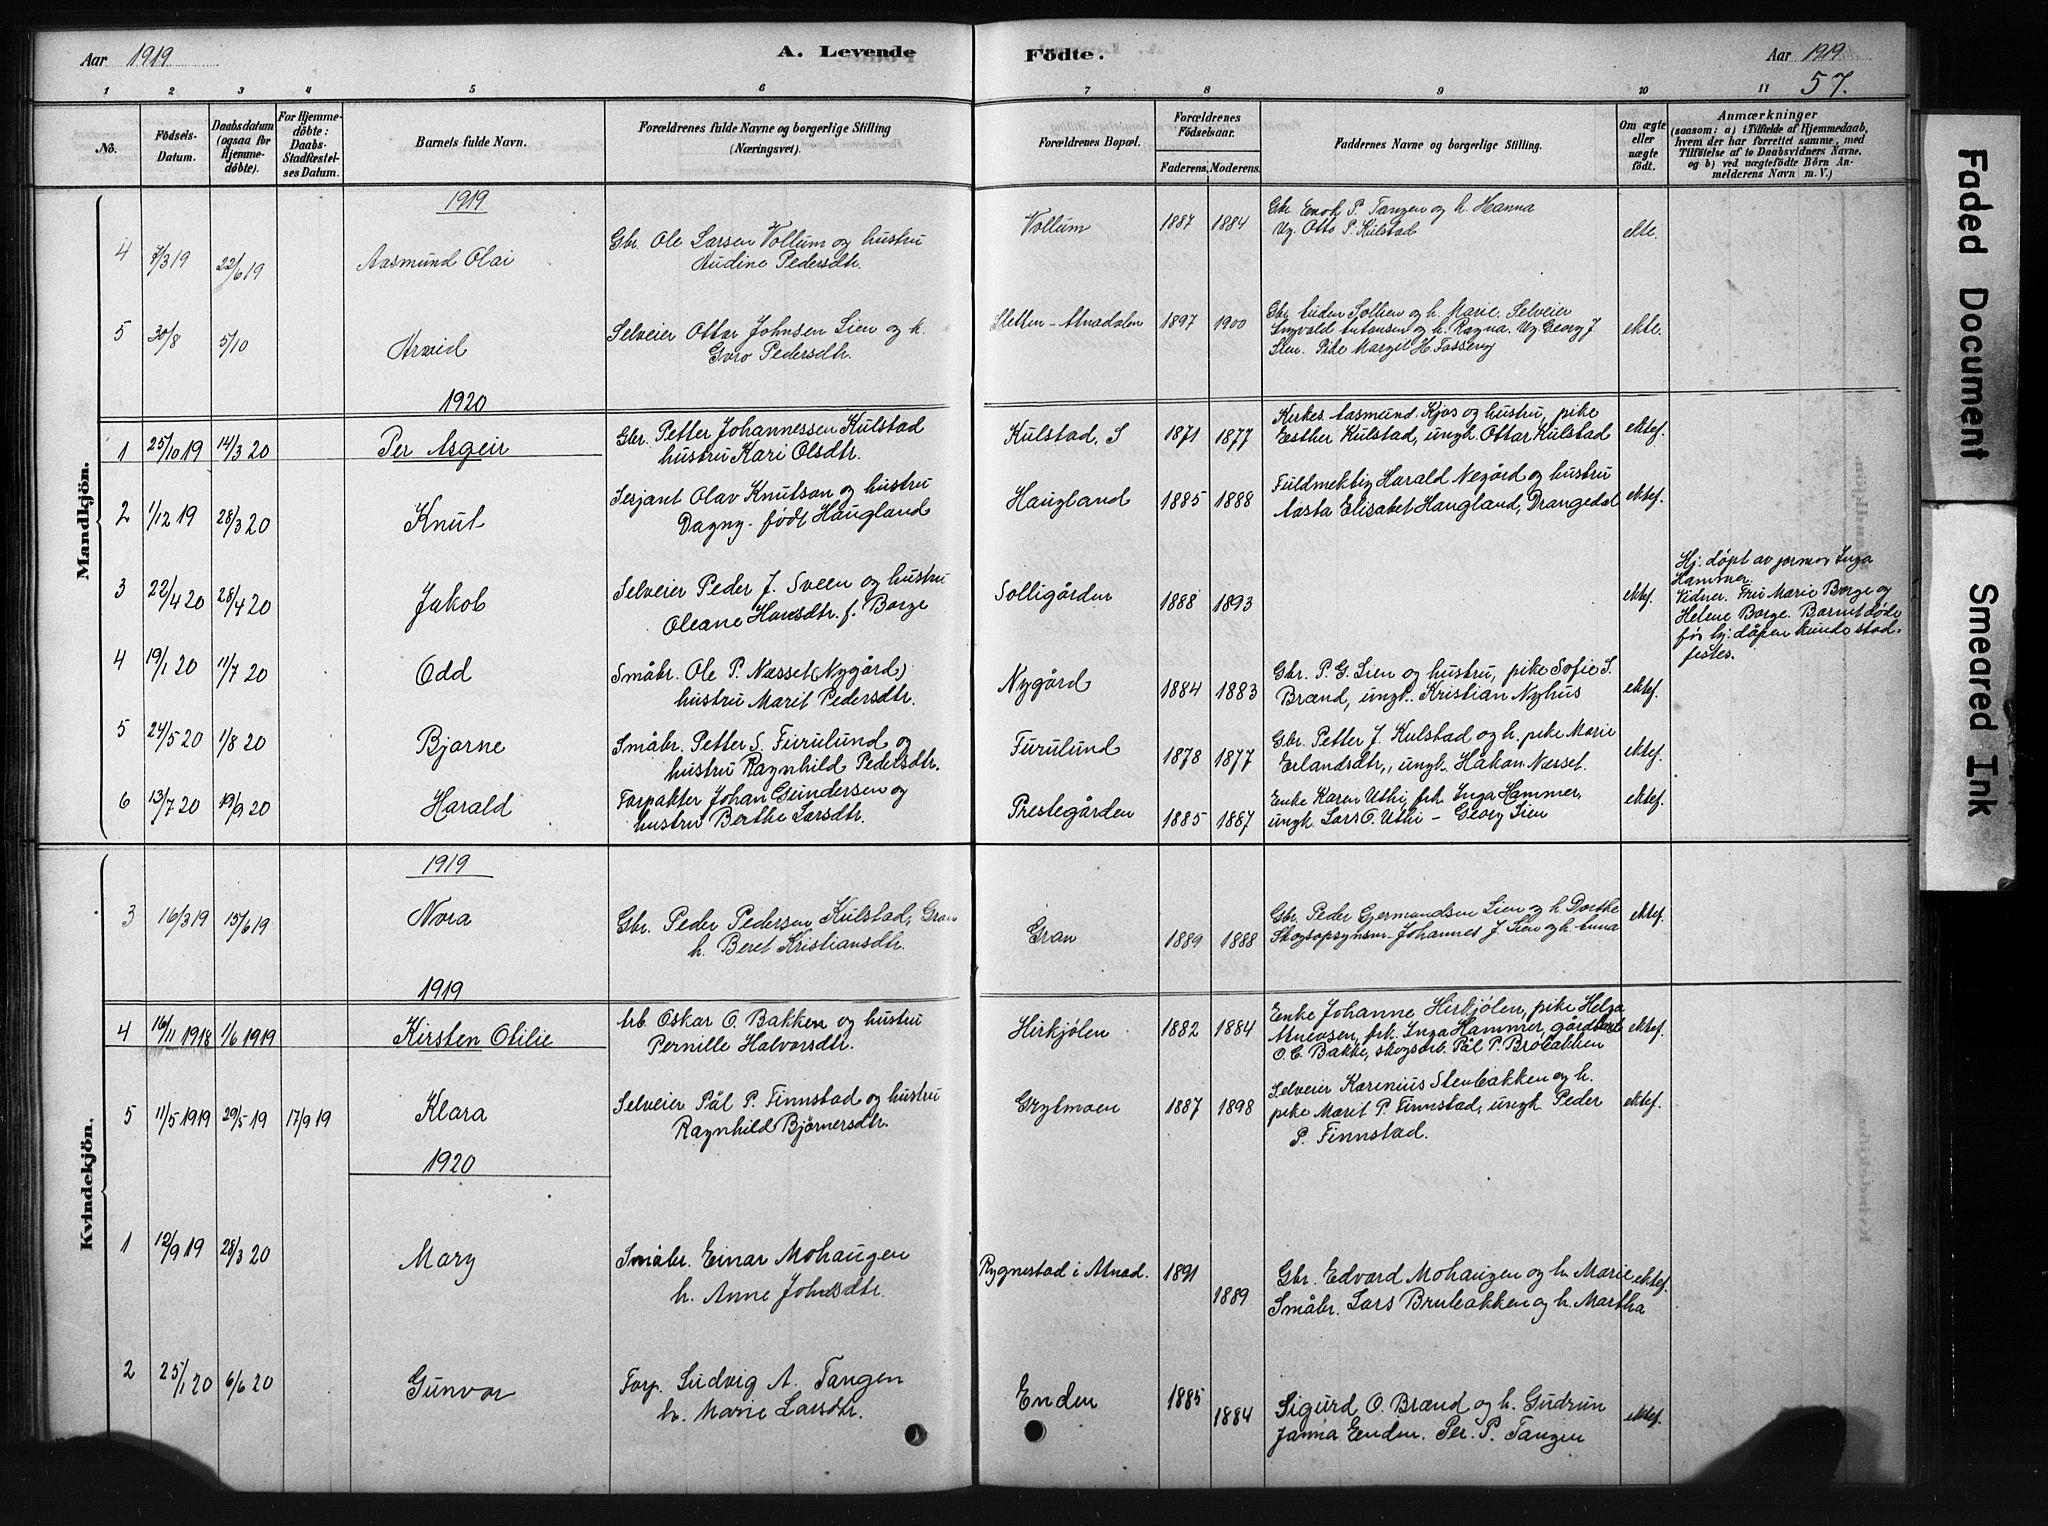 Aar 1919
A. Levende
Födte.
Aar 1919
57.
1 2 3 4 5 6 7 8 9 10 11
No.
Födsels-
Datum.
Daabsdatum
(ogsaa for
Hjemme-
döbte).
For Hjemme-
döbte:
Daabs-
Stadfæstel-
ses Datum.
Barnets fulde Navn.
Forældrenes fulde Navne og borgerlige Stilling
(Næringsvei).
Forældrenes Bopæl.
Forældrenes
Födselsaar.
Faderens. Moderens.
Faddernes Navne og borgerlige Stilling.
Om ægte
eller
uægte
födt.
Anmærkninger
(saasom: a) i Tilfælde af Hjemmedaab,
hvem der har forrettet samme, med
Tilföielse af to Daabsvidners Navne,
og b) ved uægtefödte Börn An-
melderens Navn m. V.)
Mandkjön.
1919
4 7/3 19 22/6 19 Aasmund Olai
Gbr. Ole Larsen Vollum og hustru
Audine Pedersdtr.
Vollum 1887 1884
Gbr. Enok P. Tangen og h. Hanna
Ug. Otto P. Kulstad
ekte.
5 30/8 5/10 Arvid
Selveier Ottar Johnsen Lien og h.
Guro Pedersdtr.
Sletten - Atnadalen 1897 1900
Gbr. Auden Sollien og h. Marie. Selveier
Ingvald Antonsen og h. Ragna. Ug Georg J
Lien. Pike Margit H. Fosseng
ekte.
1920
1 25/10 19 14/3 20 Per Asgeir
Gbr. Petter Johannessen Kulstad
hustru Kari Olsdtr.
Kulstad. S 1871 1877
Kirkes. Aasmund Kjos og hustru, pike
Esther Kulstad, ungk. Ottar Kulstad
ektef.
2 1/12 19 28/3 20 Knut
Sersjant Olav Knutson og hustru
Dagny - født Haugland
Haugland 1885 1888
Fuldmektig Harald Negård og hustru
Aasta Elisabet Haugland, Drangedal
ektef.
3 22/4 20 28/4 20 Jakob
Selveier Peder J. Sveen og hustru
Oleane Hansdtr. f. Borge
Solligården 1888 1893
ektef.
Hj. døpt av jormor Inga
Hammer.
Vidner. Fru Marie Borge og
Helene Borge. Barnet døde
før hj. dåpen kunde stad-
festes.
4 19/1 20 11/7 20 Odd
Småbr. Ole P. Næsset (Nygård)
hustru Marit Pedersdtr.
Nygård 1884 1883
Gbr. P. G. Lien og hustru, pike Sofie S.
Brænd, ungk. Kristian Nyhus
ektef.
5 24/5 20 1/8 20 Bjarne
Småbr. Petter S. Furulund og
hustru Ragnhild Pedersdtr.
Furulund 1878 1877
Gbr. Petter J. Kulstad og h. pike Marie
Erlandsdtr., ungk. Håkon Næsset.
ektef.
6 13/7 20 19/9 20 Harald
Forpakter Johan Gundersen og
hustru Berthe Larsdtr.
Prestegården 1885 1887
Enke Karen Uthi, frk. Inga Hammer,
ungk. Lars O. Uthi - Georg Lien
ektef.
Kvindekjön.
1919
3 16/3 19 15/6 19 Nora
Gbr. Peder Pedersen Kulstad, Gran
h. Beret Kristiansdtr.
Gran 1889 1888
Gbr. Peder Gjermundsen Lien og h Dorthe
Skogsopsynsm. Johannes J Lien og h. Anna
ektef.
1919
4 16/11 1918 1/6 1919 Kirsten Otilie
Arb. Oskar O. Bakken og hustru
Pernille Halvorsdtr.
Hirkjølen 1882 1884
Enke Johanne Hirkjølen, pike Helga
Arnevsen, frk. Inga Hammer,
O. C. Bakke, skogsarb. Pål P. Brobakken
ektef.
5 11/5 1919 29/5 19 17/9 19 Klara
Selveier Pål P. Finnstad og hustru
Ragnhild Bjørnersdtr.
Grytmoen 1887 1898
Selveier Karenius Stenbakken og h.
pike Marit P. Finnstad, ungk. Peder
P. Finnstad.
ektef.
1920
1 12/9 19 28/3 20 Mary
Småbr. Einar Mohaugen
h. Anne Johnsdtr.
Rygnestad i Atnad. 1891 1889
Gbr. Edvard Mohaugen og h. Marie
Småbr. Lars Brubakken og h. Martha
ektef.
2 25/1 20 6/6 20 Gunvor
Forp. Ludvig A. Tangen
h. Marie Larsdtr.
Enden 1885 1884
Sigurd O. Brænd og h. Gudrun
Janna Enden. Per. P. Tangen
ektef.
Faded Document
Smeared Ink